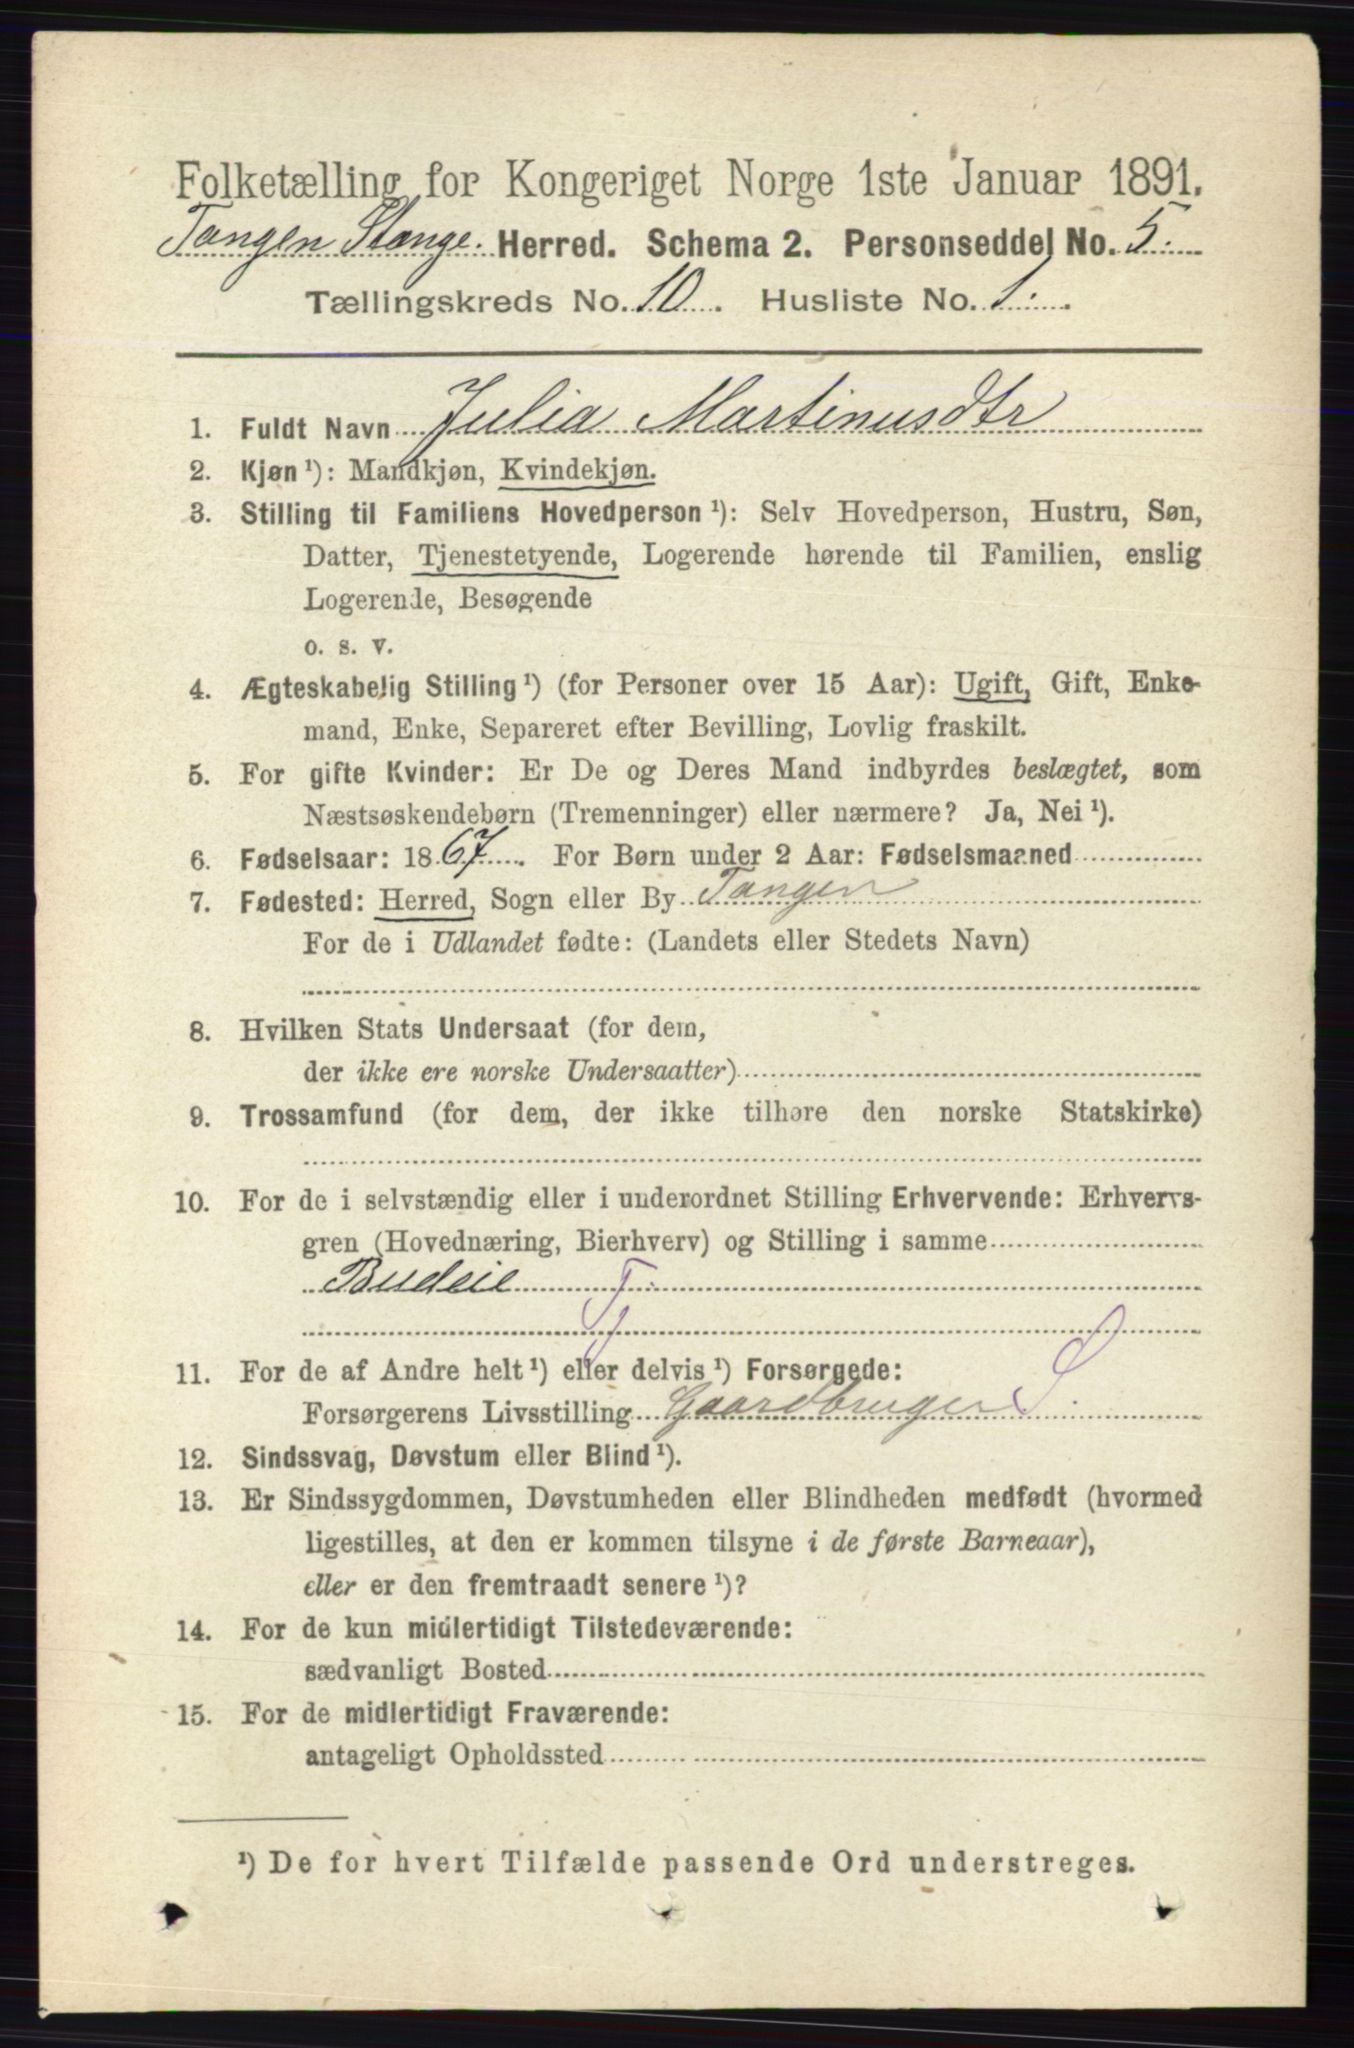 Folketælling for Kongeriget Norge 1ste Januar 1891.
Tangen Stange. Herred. Schema 2. Personseddel No. 5.
Tællingskreds No. 10. Husliste No. 1.
1. Fuldt Navn Julia Martinusdtr
2. Kjøn ¹): Mandkjøn, Kvindekjøn.
3. Stilling til Familiens Hovedperson ¹): Selv Hovedperson, Hustru, Søn,
Datter, Tjenestetyende, Logerende hørende til Familien, enslig
Logerende, Besøgende
o. s. v.
4. Ægteskabelig Stilling ¹) (for Personer over 15 Aar): Ugift, Gift, Enke-
mand, Enke, Separeret efter Bevilling, Lovlig fraskilt.
5. For gifte Kvinder: Er De og Deres Mand indbyrdes beslægtet, som
Næstsøskendebørn (Tremenninger) eller nærmere? Ja, Nei ¹).
6. Fødselsaar: 1867. For Børn under 2 Aar: Fødselsmaaned
7. Fødested: Herred, Sogn eller By Tangen
For de i Udlandet fødte: (Landets eller Stedets Navn)
8. Hvilken Stats Undersaat (for dem,
der ikke ere norske Undersaatter)
9. Trossamfund (for dem, der ikke tilhøre den norske Statskirke)
10. For de i selvstændig eller i underordnet Stilling Erhvervende: Erhvervs-
gren (Hovednæring, Bierhverv) og Stilling i samme
Budeie Tj
11. For de af Andre helt ¹) eller delvis ¹) Forsørgede:
Forsørgerens Livsstilling Gaardbruger S.
12. Sindssvag, Døvstum eller Blind ¹).
13. Er Sindssygdommen, Døvstumheden eller Blindheden medfødt (hvormed
ligestilles, at den er kommen tilsyne i de første Barneaar),
eller er den fremtraadt senere ¹)?
14. For de kun midlertidigt Tilstedeværende:
sædvanligt Bosted
15. For de midlertidigt Fraværende:
antageligt Opholdssted
¹) De for hvert Tilfælde passende Ord understreges.